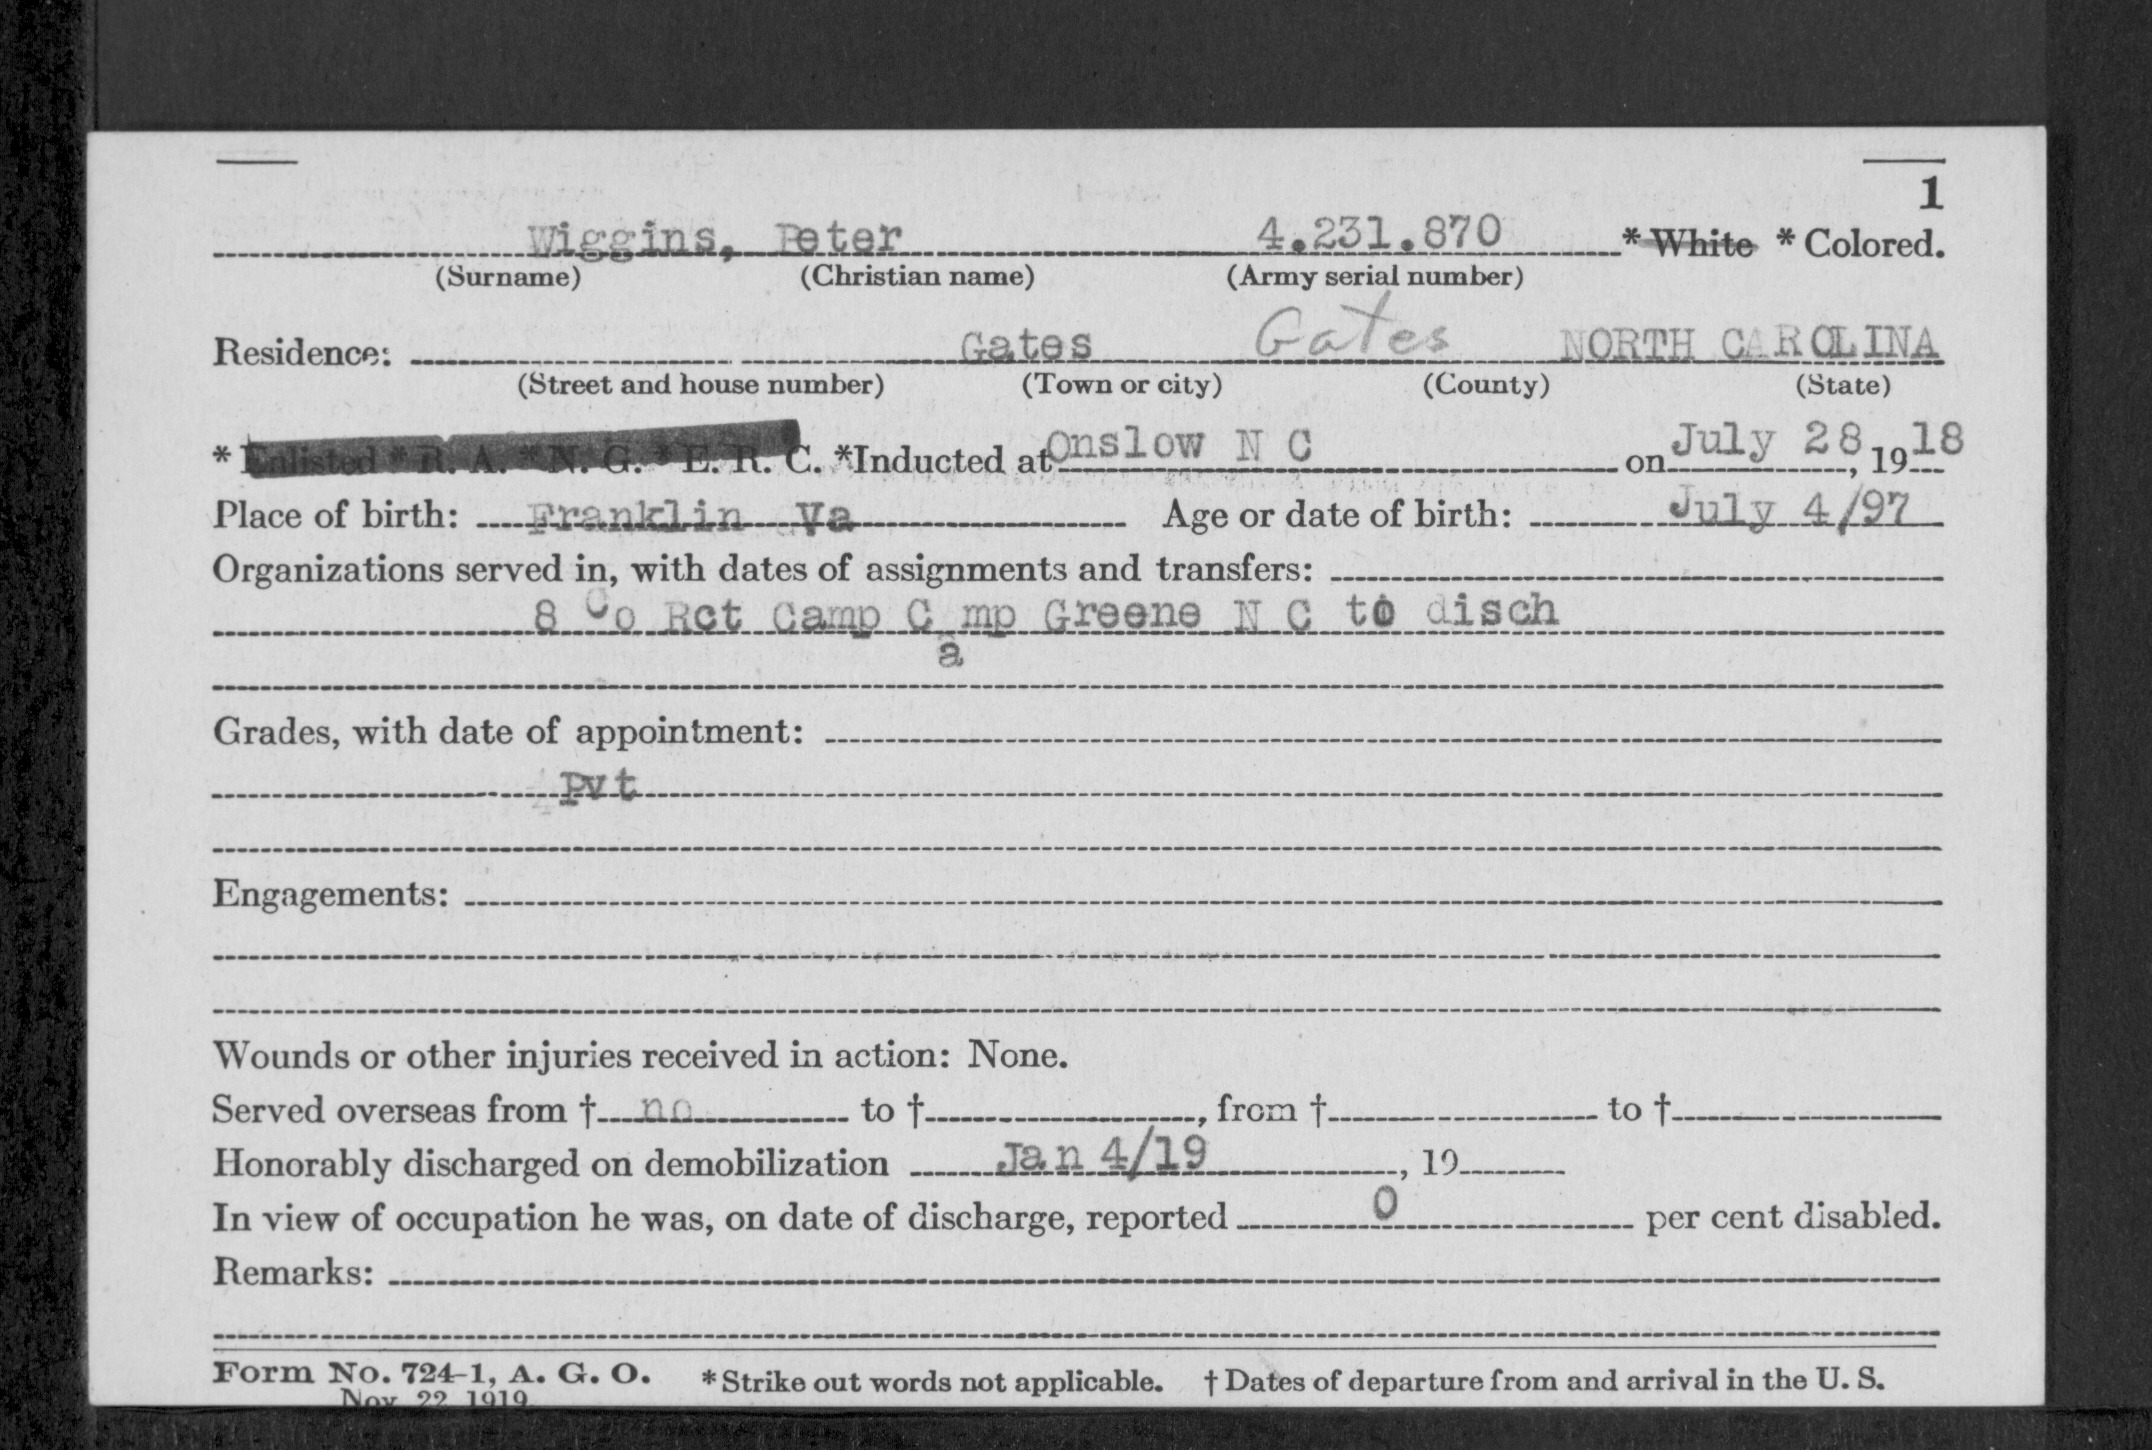 1
Wiggins, Peter 4.231.870 * White * Colored.
(Surname) (Christian name) (Army serial number)
Residence: Gates Gates NORTH CAROLINA
(Street and house number) (Town or city) (County) (State)
* Enlisted * R. A. * N. G. * E. R. C. *Inducted at Onslow N C on July 28, 1918
Place of birth: Franklin Va Age or date of birth: July 4/97
Organizations served in, with dates of assignments and transfers:
8 Co Rct Camp C mp Greene N C to disch
a
Grades, with date of appointment:
Pvt
Engagements:
Wounds or other injuries received in action: None.
Served overseas from † no to †, from † to †
Honorably discharged on demobilization Jan 4/19, 19
In view of occupation he was, on date of discharge, reported 0 per cent disabled.
Remarks:
Form No. 724-1, A. G. O. * Strike out words not applicable. † Dates of departure from and arrival in the U. S.
Nov. 22, 1919